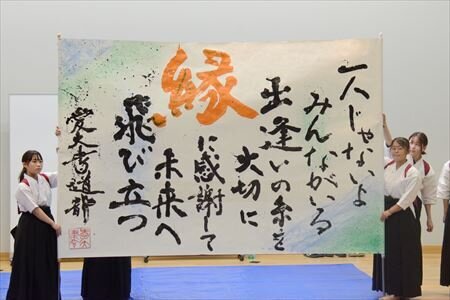 一人じゃないよ
みんながいる
出逢いの糸を
大切に
縁
に感謝して
未来へ
飛び立つ
愛大書道部